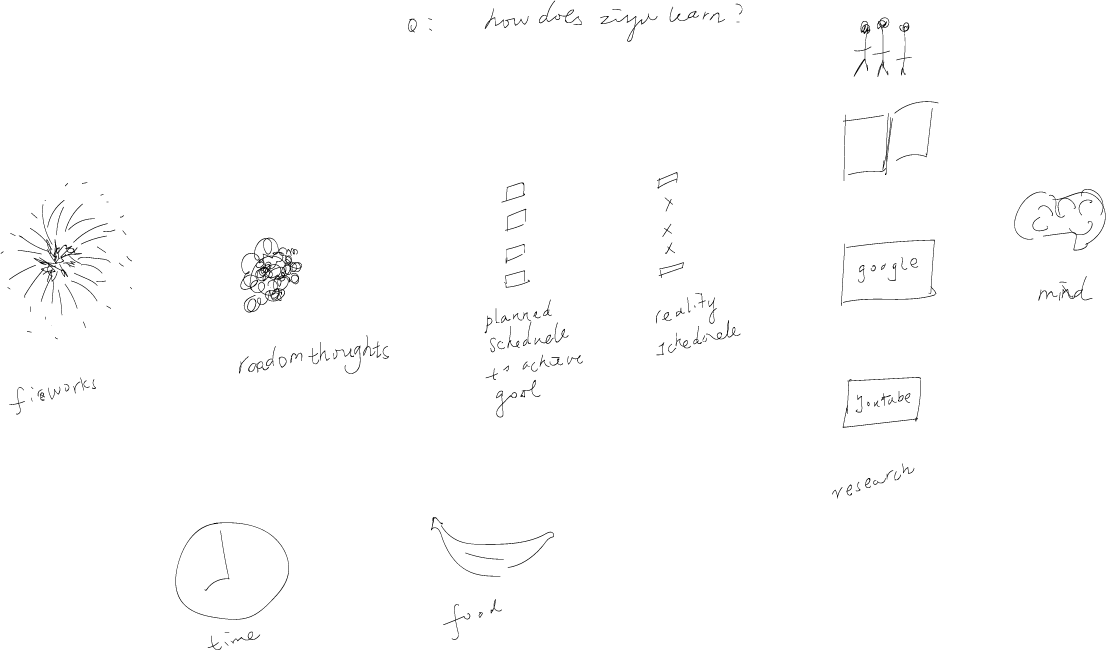 Q: how does ziyu learn?
fireworks
random thoughts
planned
schedule
to achieve
goal
reality
schedule
google
youtube
research
mind
time
food